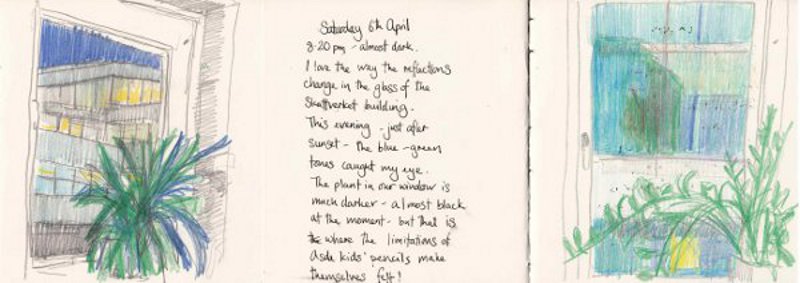 Saturday 6th April
8.20 pm - almost dark.
I love the way the reflections
change in the glass of the
Skattverket building.
This evening - just after
sunset - the blue-green
tones caught my eye.
The plant in our window is
much darker - almost black
at the moment - but that is
where the limitations of
Asda kids' pencils make
themselves felt!